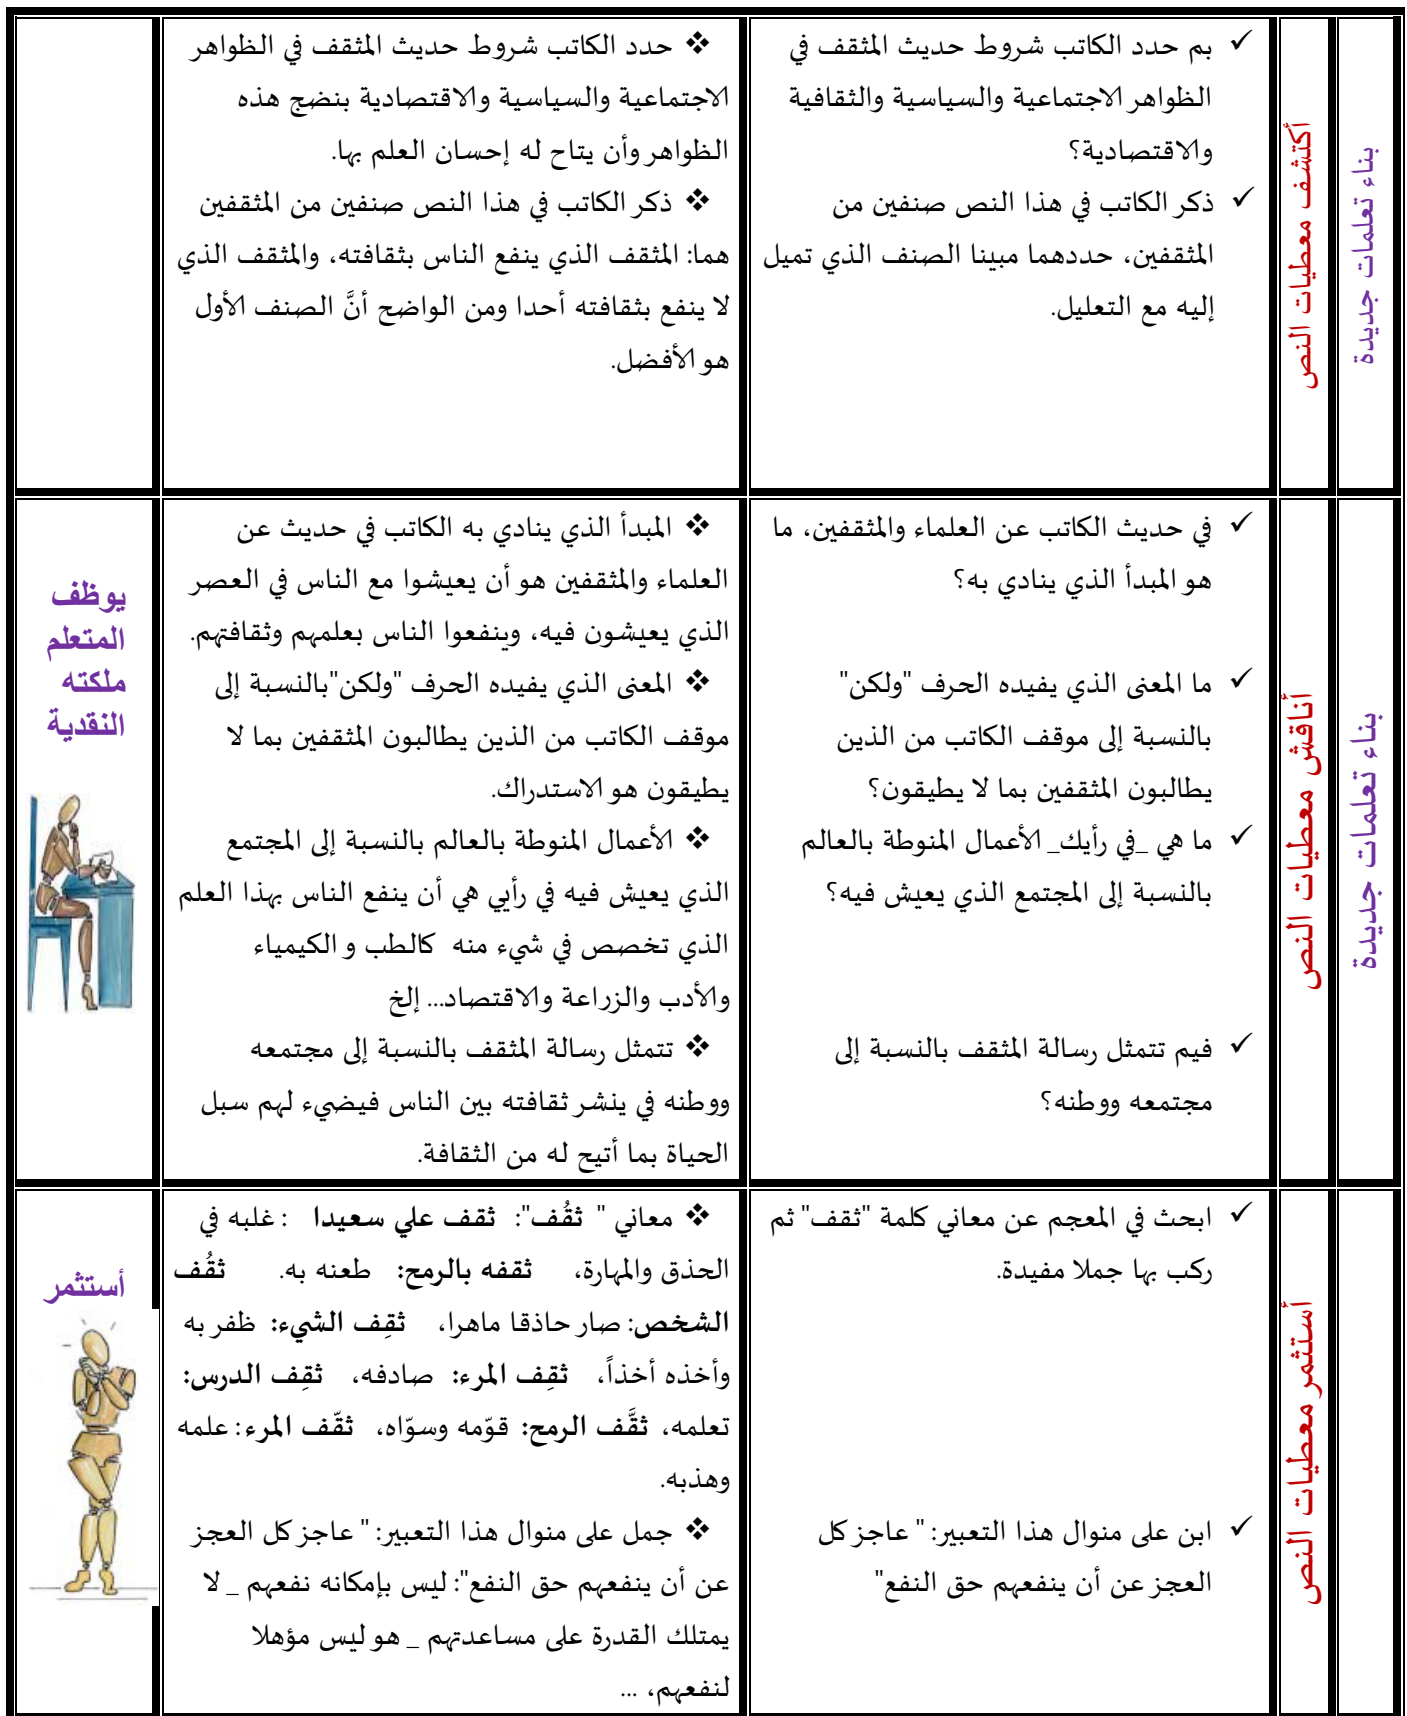 بناء تعلمات جديدة
أكتشف معطيات النص
✓ بم حدد الكاتب شروط حديث المثقف في
الظواهر الاجتماعية والسياسية والثقافية
والاقتصادية؟
✓ ذكر الكاتب في هذا النص صنفين من
المثقفين، حددهما مبينا الصنف الذي تميل
إليه مع التعليل.
❖ حدد الكاتب شروط حديث المثقف في الظواهر
الاجتماعية والسياسية والاقتصادية بنضج هذه
الظواهر وأن يتاح له إحسان العلم بها.
❖ ذكر الكاتب في هذا النص صنفين من المثقفين
هما: المثقف الذي ينفع الناس بثقافته، والمثقف الذي
لا ينفع بثقافته أحدا ومن الواضح أنَّ الصنف الأول
هو الأفضل.
بناء تعلمات جديدة
أناقش معطيات النص
✓ في حديث الكاتب عن العلماء والمثقفين، ما
هو المبدأ الذي ينادي به؟
✓ ما المعنى الذي يفيده الحرف "ولكن"
بالنسبة إلى موقف الكاتب من الذين
يطالبون المثقفين بما لا يطيقون؟
✓ ما هي _في رأيك_ الأعمال المنوطة بالعالم
بالنسبة إلى المجتمع الذي يعيش فيه؟
✓ فيم تتمثل رسالة المثقف بالنسبة إلى
مجتمعه ووطنه؟
❖ المبدأ الذي ينادي به الكاتب في حديث عن
العلماء والمثقفين هو أن يعيشوا مع الناس في العصر
الذي يعيشون فيه، وينفعوا الناس بعلمهم وثقافتهم.
❖ المعنى الذي يفيده الحرف "ولكن"بالنسبة إلى
موقف الكاتب من الذين يطالبون المثقفين بما لا
يطيقون هو الاستدراك.
❖ الأعمال المنوطة بالعالم بالنسبة إلى المجتمع
الذي يعيش فيه في رأيي هي أن ينفع الناس بهذا العلم
الذي تخصص في شيء منه كالطب و الكيمياء
والأدب والزراعة والاقتصاد... إلخ
❖ تتمثل رسالة المثقف بالنسبة إلى مجتمعه
ووطنه في ينشر ثقافته بين الناس فيضيء لهم سبل
الحياة بما أتيح له من الثقافة.
يوظف
المتعلم
ملكته
النقدية
أستثمر معطيات النص
✓ ابحث في المعجم عن معاني كلمة "ثقف" ثم
ركب بها جملا مفيدة.
✓ ابن على منوال هذا التعبير: " عاجز كل
العجز عن أن ينفعهم حق النفع"
❖ معاني " ثقُف": ثقف علي سعيدا : غلبه في
الحذق والمهارة، ثقفه بالرمح: طعنه به. ثقُف
الشخص: صار حاذقا ماهرا، ثقِف الشيء: ظفر به
وأخذه أخذاً، ثقِف المرء: صادفه، ثقِف الدرس:
تعلمه، ثقَّف الرمح: قوّمه وسوّاه، ثقّف المرء: علمه
وهذبه.
❖ جمل على منوال هذا التعبير: " عاجز كل العجز
عن أن ينفعهم حق النفع": ليس بإمكانه نفعهم _ لا
يمتلك القدرة على مساعدتهم _ هو ليس مؤهلا
لنفعهم، ...
أستثمر